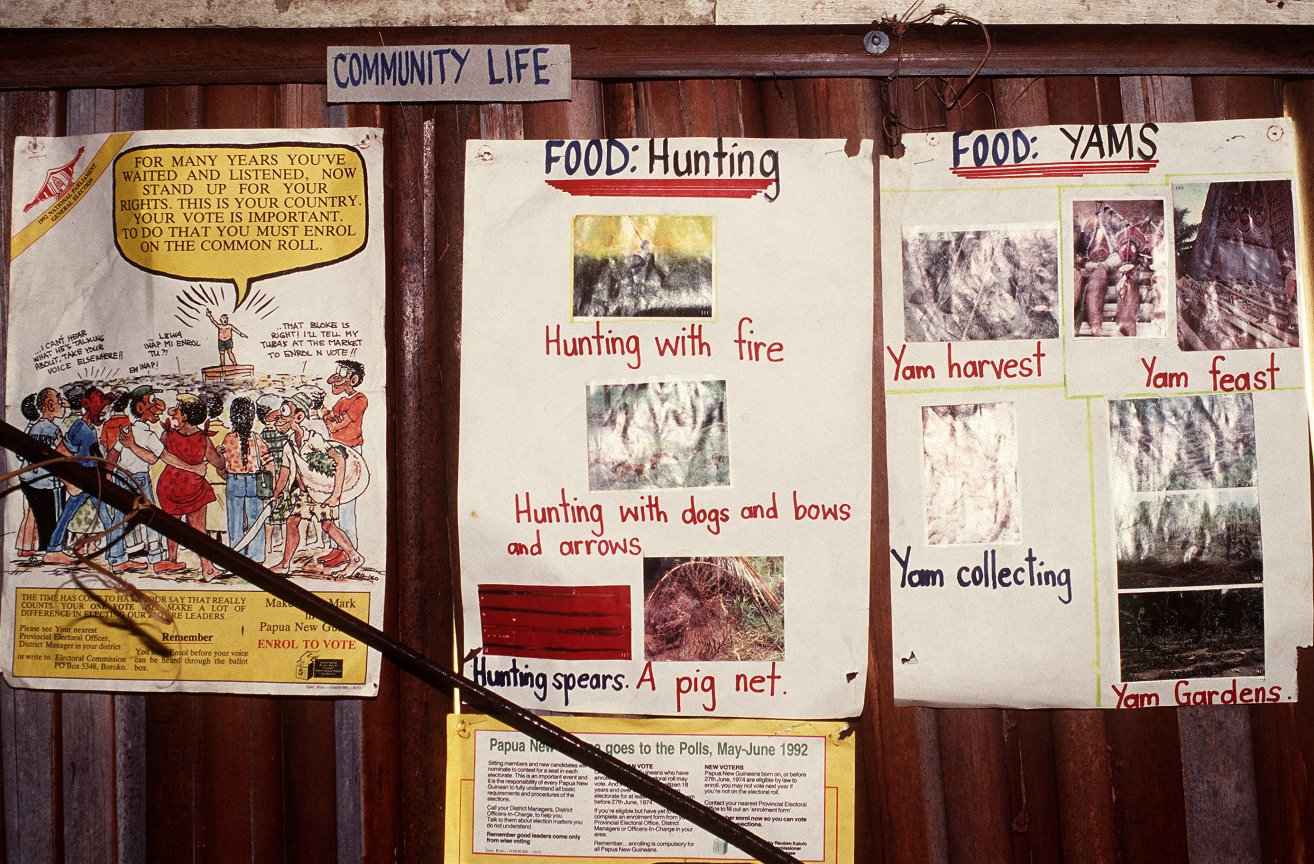 COMMUNITY LIFE
1992 NATIONAL PARLIAMENT
GENERAL ELECTION
FOR MANY YEARS YOU'VE
WAITED AND LISTENED, NOW
STAND UP FOR YOUR
RIGHTS. THIS IS YOUR COUNTRY.
YOUR VOTE IS IMPORTANT.
TO DO THAT YOU MUST ENROL
ON THE COMMON ROLL.
I CAN'T HEAR
WHAT HE'S TALKING
ABOUT, TAKE YOUR
VOICE ELSEWHERE!!
INAP MI ENROL
TU?!
EM INAP!
THAT BLOKE IS
RIGHT! I'LL TELL MY
AT THE MARKET
TO ENROL N VOTE!!
THE TIME HAS COME TO YOUR SAY THAT REALLY
COUNTS. YOUR ONE VOTE MAKE A LOT OF
DIFFERENCE IN ELECTING OUR LEADERS.
Please see Your nearest
Provincial Electoral Officer,
District Manager in your district
or write to Electoral Commission
PO Box 5348, Boroko.
Remember
You Enrol before your voice
can be heard through the ballot
box.
Mark
Papua New
ENROL TO VOTE
FOOD: Hunting
Hunting with fire
Hunting with dogs and bows
and arrows
Hunting spears. A pig net.
FOOD: YAMS
193
Yam harvest
Yam feast
Yam collecting
Yam Gardens.
Papua New goes to the Polls, May-June 1992
Sitting members and new candidates
nominate to contest for a seat in each
electorate. This is an important event and
it is the responsibility of every Papua New
Guinean to fully understand all basic
requirements and procedures of the
elections.
Call your District Managers, District
Officers-In-Charge, to help you.
Talk to them about election matters you
do not understand.
Remember good leaders come only
from wise voting
AN VOTE
before 27th June, 1974.
If you're eligible but have yet to
complete an enrolment form from
Provincial Electoral Office, District
Managers or Officers-In-Charge in your
area.
Remember... enrolling is compulsory for
all Papua New Guineans.
NEW VOTERS
Papua New Guineans born on, or before
27th June, 1974 are eligible by law to
enroll. you may not vote next year if
you're not on the electoral roll.
Contact your nearest Provincial Electoral
to fill out an 'enrolment form'.
enrol now so you can vote
Reuben Kaiulo